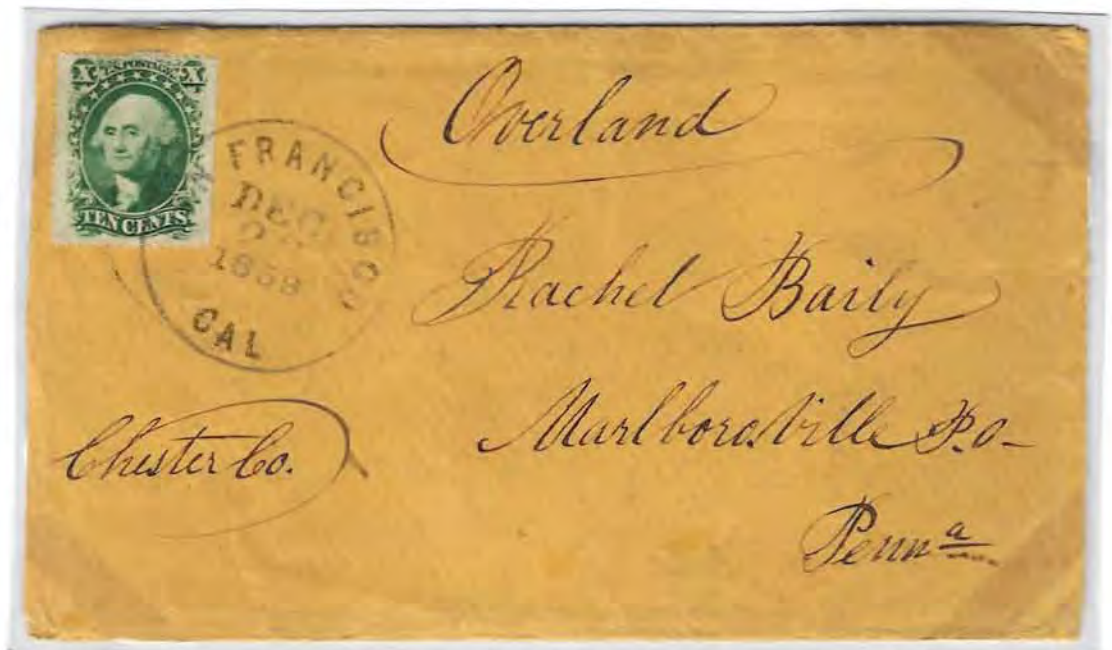 X U.S. POSTAGE X
TEN CENTS
FRANCISCO
DEC
1858
CAL
Overland
Rachel Baily
Marlboro.ville P.O-
Chester Co.
Pennª